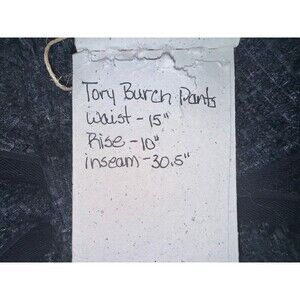 Tory Burch Pants
Waist - 15"
Rise - 10"
inseam - 30.5"